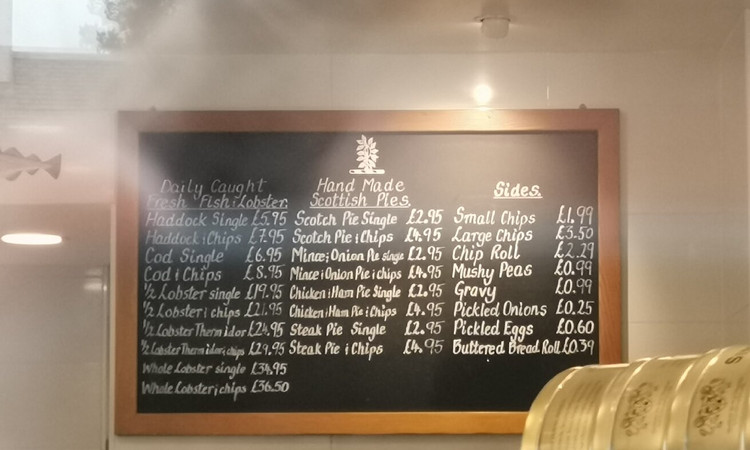 Daily Caught
Fresh Fish i Lobster.
Haddock Single £5.95
Haddock i Chips £7.95
Cod Single £6.95
Cod i Chips £8.95
½ Lobster single £19.95
½ Lobster i chips £21.95
½ Lobster Thermidor £24.95
½ Lobster Thermidor i chips £29.95
Whole Lobster single £34.95
Whole Lobster i chips £36.50
Hand Made
Scottish Pies.
Scotch Pie Single £2.95
Scotch Pie i Chips £4.95
Mince i Onion Pie single £2.95
Mince i Onion Pie i chips £4.95
Chicken i Ham Pie Single £2.95
Chicken i Ham Pie i Chips £4.95
Steak Pie Single £2.95
Steak Pie i Chips £4.95
Sides.
Small Chips £1.99
Large Chips £3.50
Chip Roll £2.29
Mushy Peas £0.99
Gravy £0.99
Pickled Onions £0.25
Pickled Eggs £0.60
Buttered Bread Roll £0.39